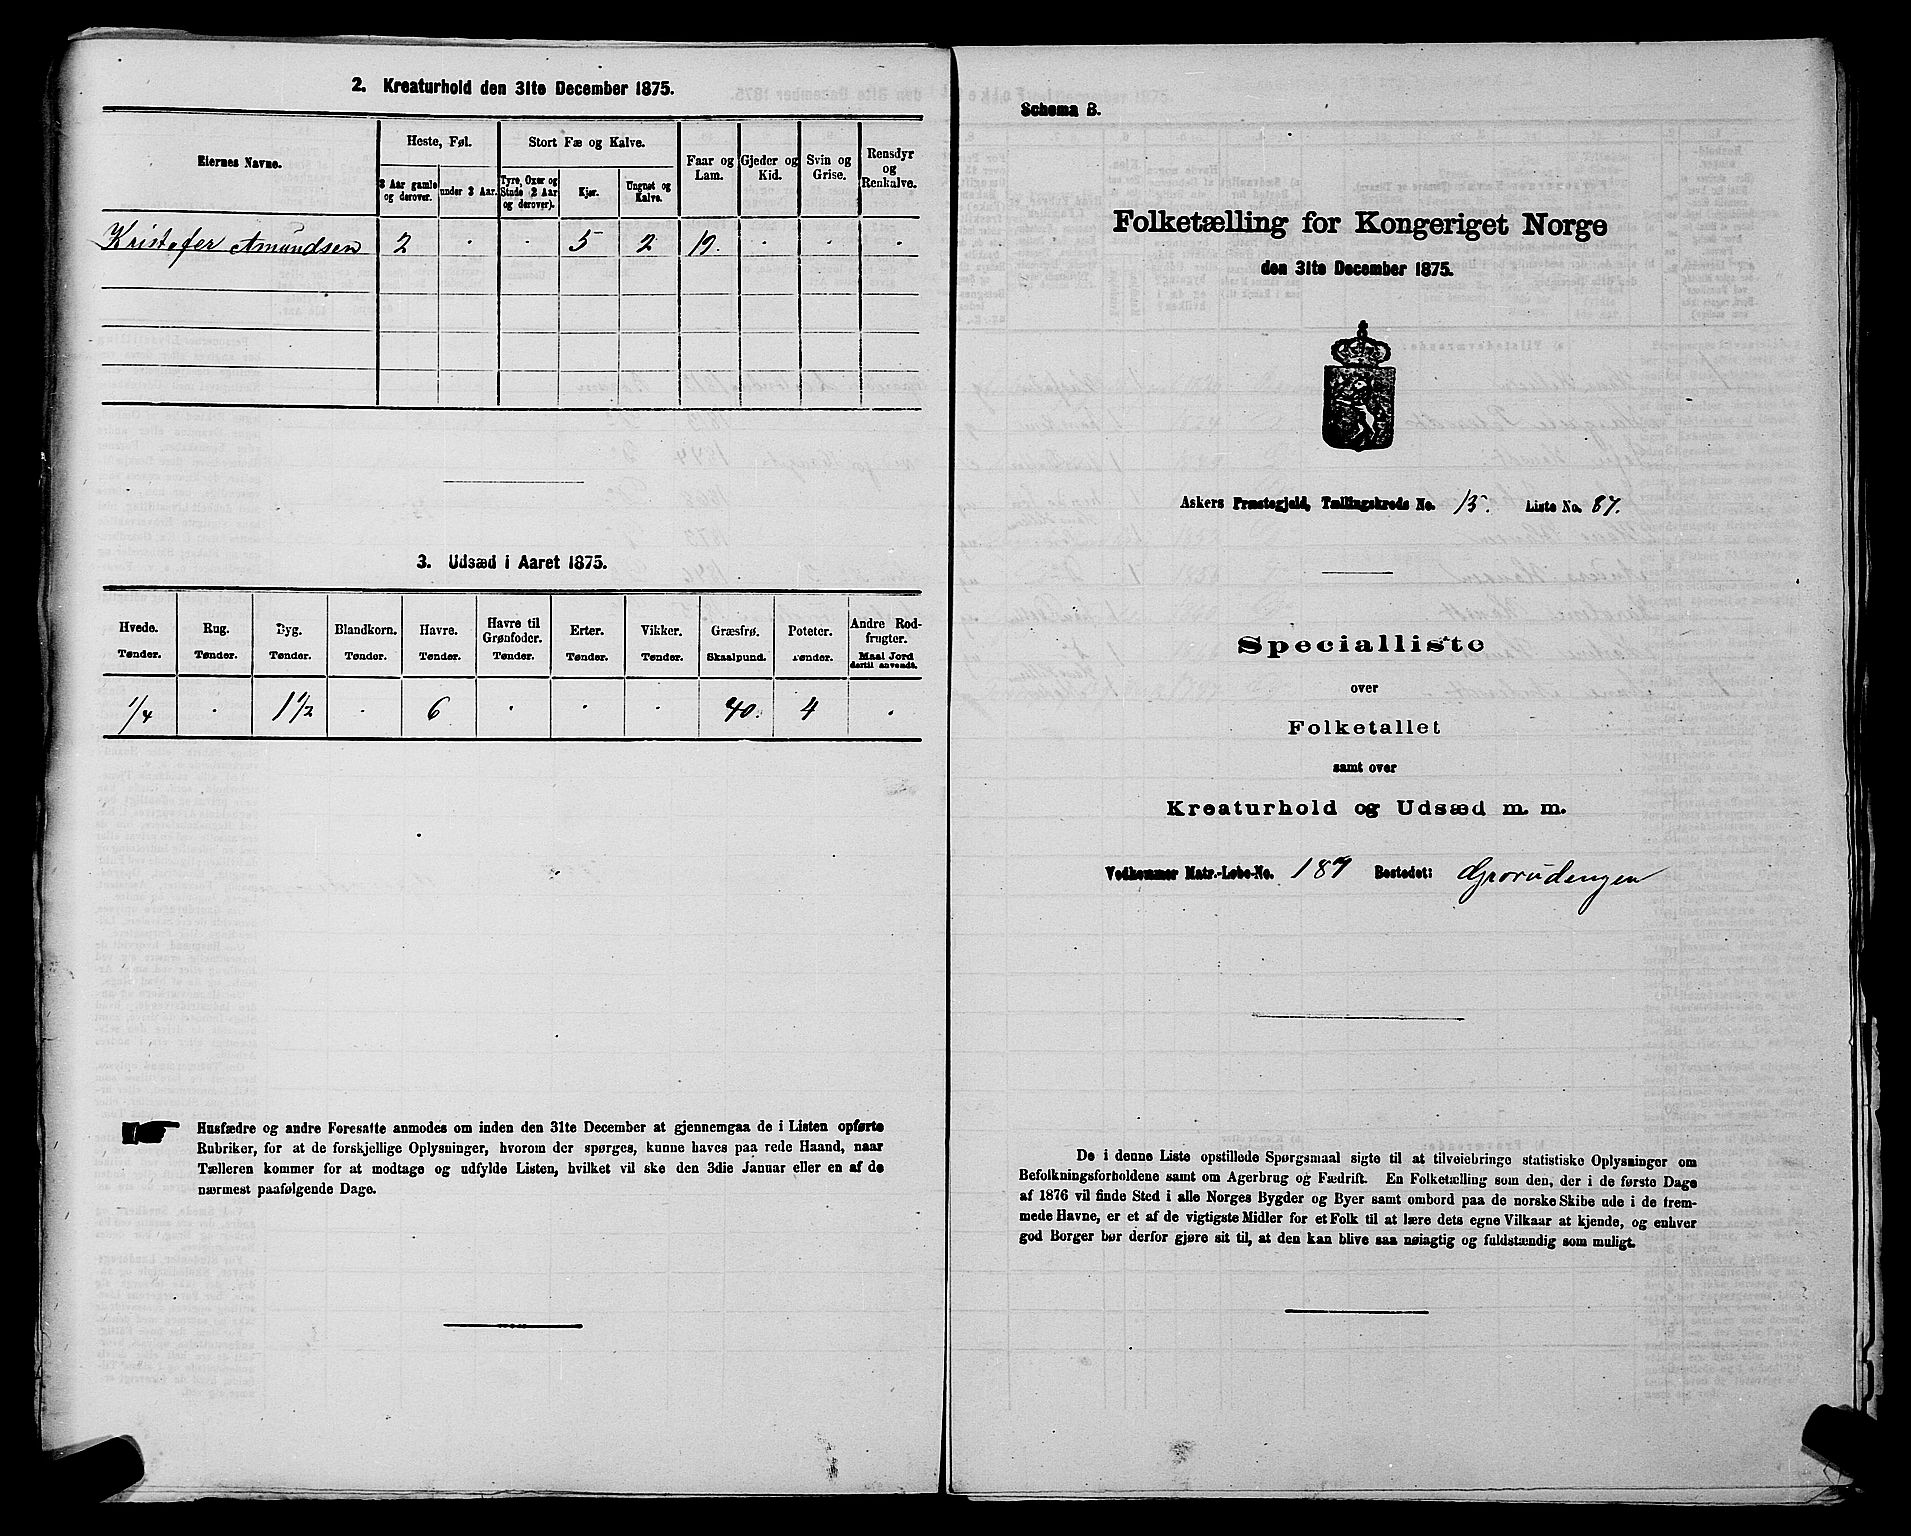 2. Kreaturhold den 31te December 1875.
Eiernes Navne.
Heste, Føl.
3 Aar gamle og derover.
under 3 Aar.
Stort Fæ og Kalve.
Tyre, Oxer og Stude (2 Aar og derover).
Kjør.
Ungnøt og Kalve.
Faar og Lam.
Gjeder og Kid.
Svin og Grise.
Rensdyr og Renkalve.
Kristofer Amundsen 2 . . 5 2 . . .
3. Udsæd i Aaret 1875.
Hvede. Tønder.
Rug. Tønder.
Byg. Tønder.
Blandkorn. Tønder.
Havre. Tønder.
Havre til Grønfoder. Tønder.
Erter. Tønder.
Vikker. Tønder.
Græsfrø. Skaalpund.
Poteter. Tønder.
Andre Rodfrugter. Maal Jord dertil anvendt.
1/4 . 1 1/2 . 6 . . . 40. 4 .
Husfædre og andre Foresatte anmodes om inden den 31te December at gjennemgaa de i Listen opførte
Rubriker, for at de forskjellige Oplysninger, hvorom der spørges, kunne haves paa rede Haand, naar
Tælleren kommer for at modtage og udfylde Listen, hvilket vil ske den 3die Januar eller en af de
nærmest paafølgende Dage.
Schema B.
Folketælling for Kongeriget Norge
den 31te December 1875.
Askers Præstegjeld, Tællingskreds No. 13. Liste No. 87.
Specialliste
over
Folketallet
samt over
Kreaturhold og Udsæd m. m.
Vedkommer Matr.-Løbe-No. 187 Bostedet: Grorudengen
De i denne Liste opstillede Spørgsmaal sigte til at tilveiebringe statistiske Oplysninger om
Befolkningsforholdene samt om Agerbrug og Fædrift. En Folketælling som den, der i de første Dage
af 1876 vil finde Sted i alle Norges Bygder og Byer samt ombord paa de norske Skibe ude i de frem-
mede Havne, er et af de vigtigste Midler for et Folk til at lære dets egne Vilkaar at kjende, og enhver
god Borger bør derfor gjøre sit til, at den kan blive saa nøiagtig og fuldstændig som muligt.